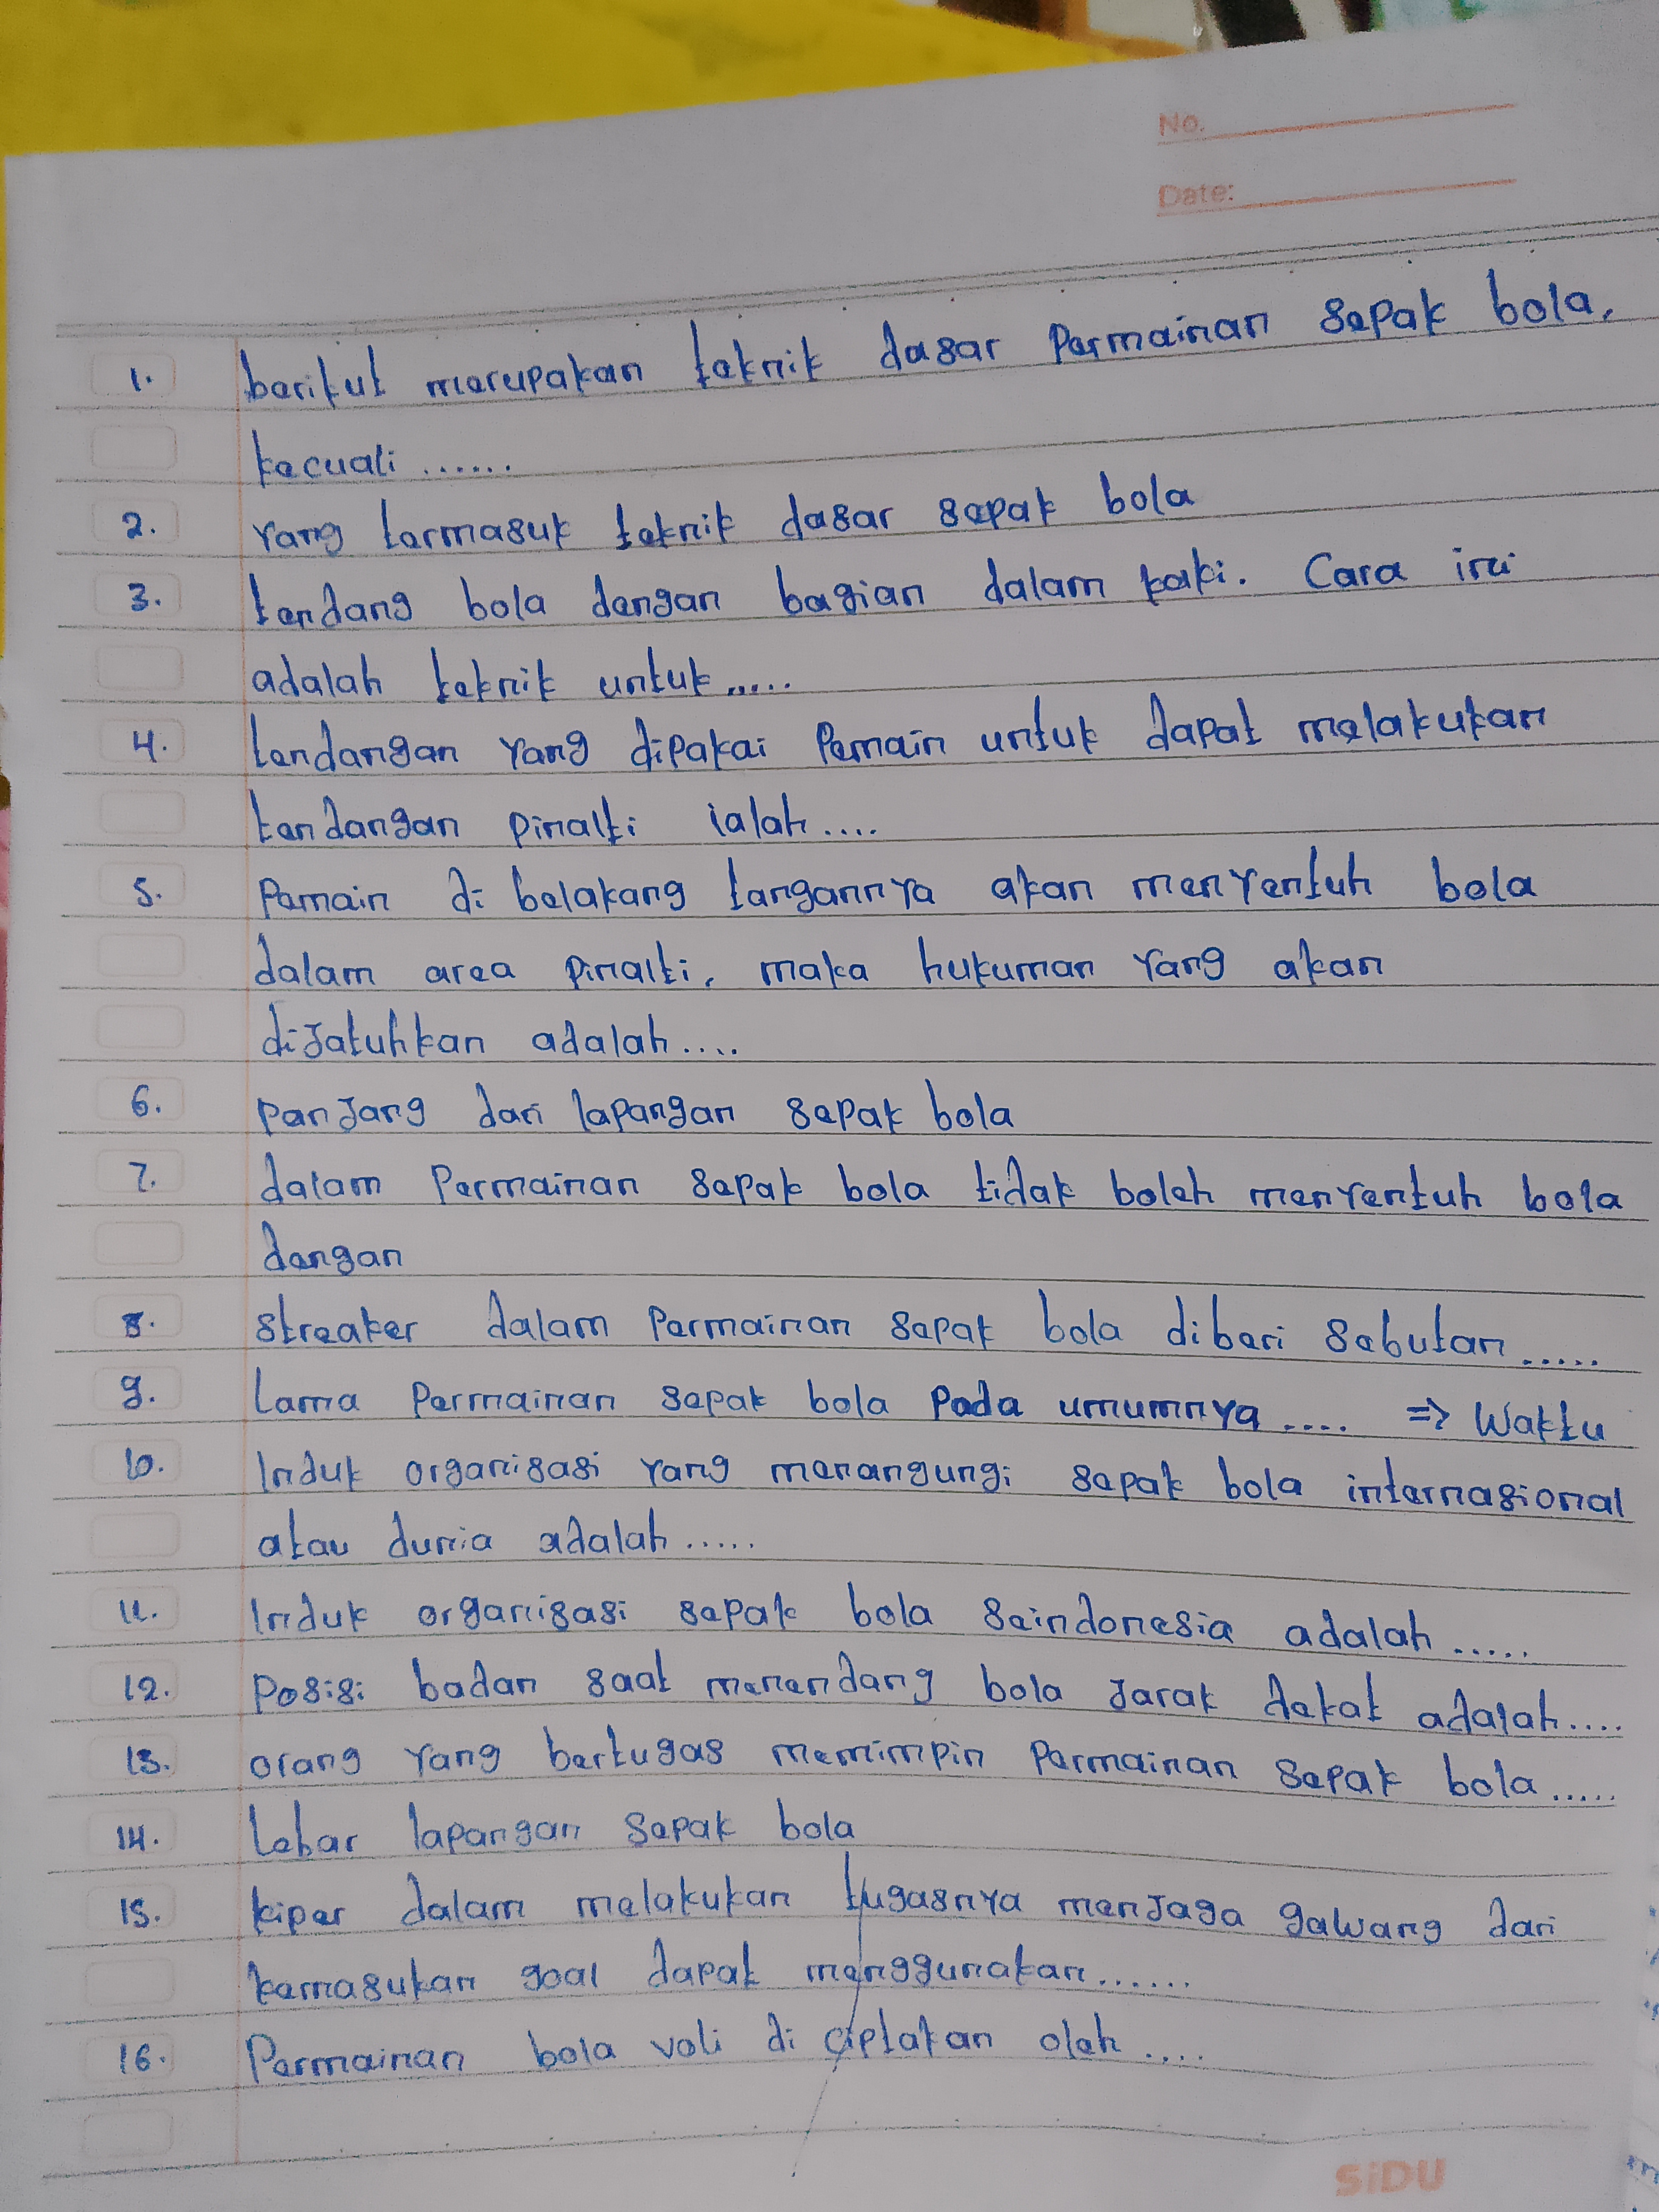 No.
Date:
1. berikut merupakan teknik dasar Permainan sepak bola,
kecuali ......
2. Yang termasuk teknik dasar sepak bola
3. tendang bola dengan bagian dalam kaki. Cara ini
adalah teknik untuk .....
4. tendangan Yang dipakai Pemain untuk dapat melakukan
tendangan pinalti ialah ....
5. Pemain di belakang tangannya akan menyentuh bola
dalam area pinalti, maka hukuman Yang akan
dijatuhkan adalah ....
6. panjang dari lapangan sepak bola
7. dalam Permainan sepak bola tidak boleh menyentuh bola
dengan
8. streaker dalam Permainan sepak bola diberi sebutan .....
9. Lama Permainan sepak bola Pada umumnya .... => Waktu
10. Induk organisasi yang menangungi sepak bola internasional
atau dunia adalah .....
11. Induk organisasi sepak bola seindonesia adalah .....
12. Posisi badan saat menendang bola jarak dekat adalah ....
13. orang yang bertugas memimpin Permainan sepak bola .....
14. Lebar lapangan sepak bola
15. kiper dalam melakukan tugasnya menjaga gawang dari
kemasukan goal dapat menggunakan ......
16. Permainan bola voli di ciptakan oleh ....
SiDU